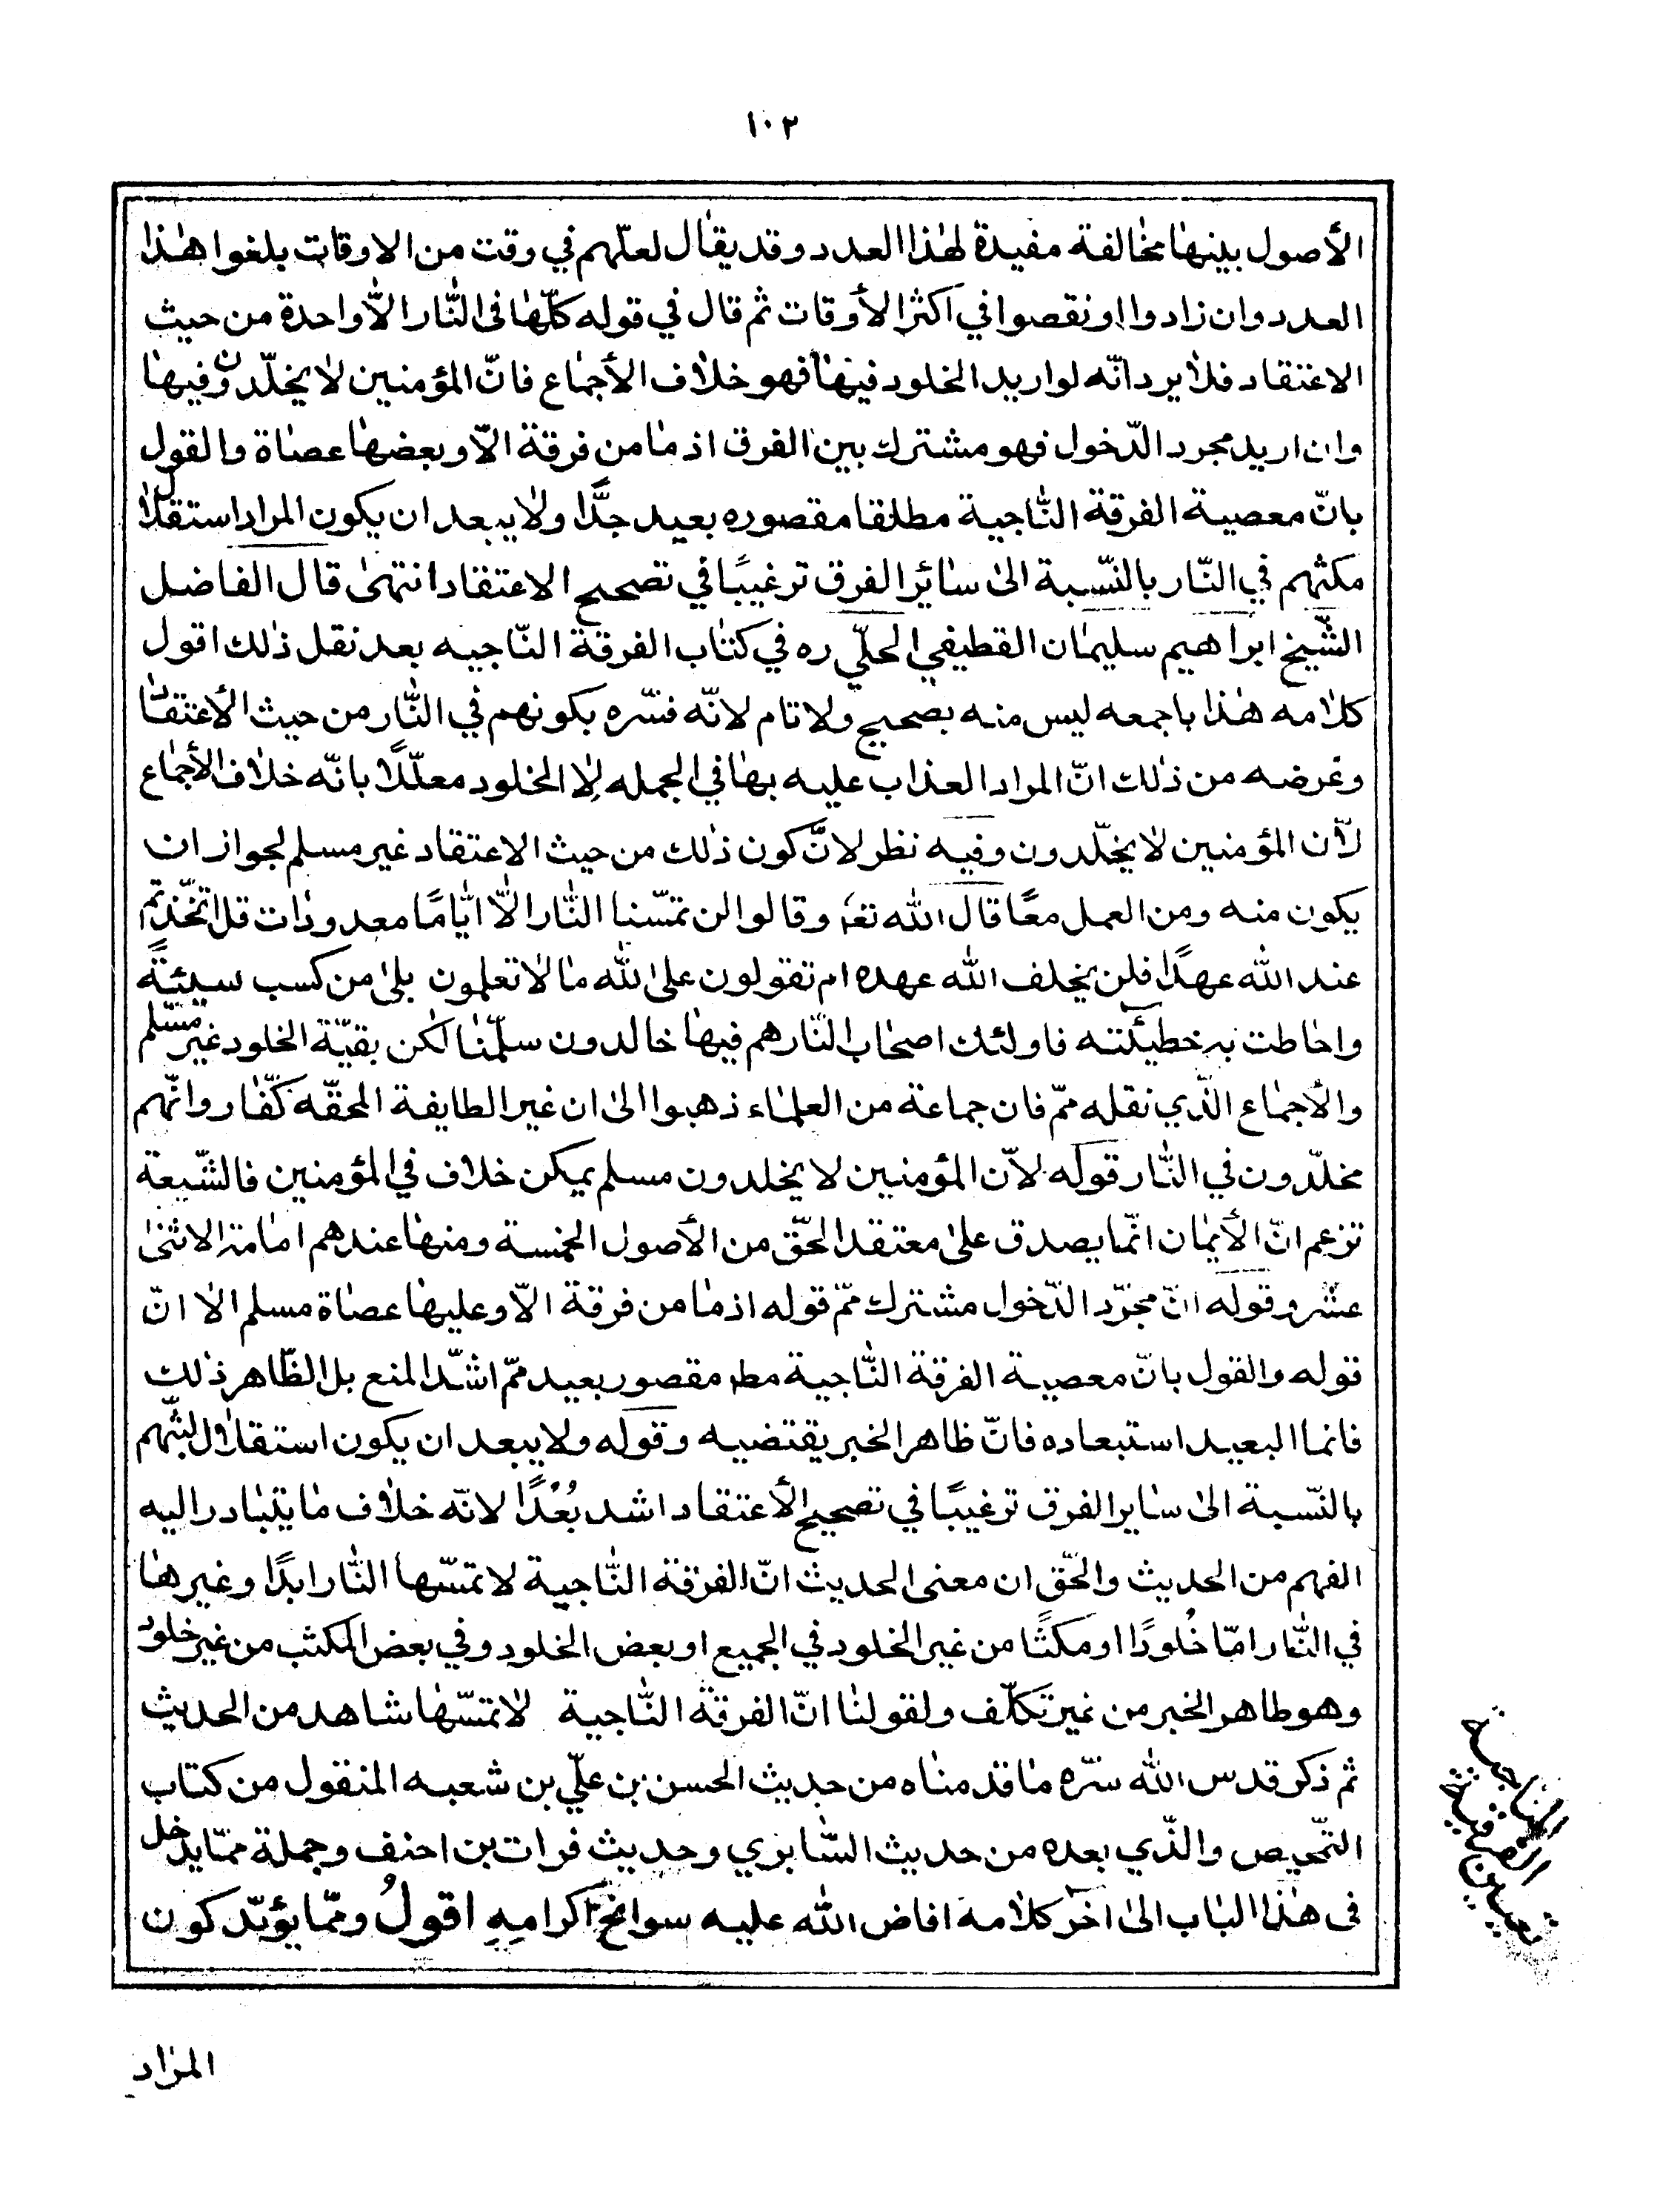 ١٠٢
الأصول بينها مخالفة مفيدة لهذا العدد وقد يقال لعلّهم في وقت من الاوقات بلغوا هذا
العدد وان زادوا او نقصوا في اكثر الأوقات ثم قال في قوله كلّها فى النّار الّا واحدة من حيث
الاعتقاد فلا يرد انّه لو اريد الخلود فيها فهو خلاف الأجماع فانّ المؤمنين لا يخلّدون فيها
وان اريد مجرد الدّخول فهو مشترك بين الفرق اذ ما من فرقة الّا وبعضها عصاة والقول
بانّ معصية الفرقة النّاجية مطلقا مقصوره بعيد جدًّا ولا يبعد ان يكون المراد استقلال
مكثهم في النّار بالنّسبة الى سائر الفرق ترغيبًا في تصحيح الاعتقاد انتهى قال الفاضل
الشّيخ ابراهيم سليمان القطيفي الحلّي ره في كتاب الفرقة النّاجيه بعد نقل ذلك اقول
كلامه هذا باجمعه ليس منه بصحيح ولا تام لانّه فسّره بكونهم في النّار من حيث الأعتقاد
وغرضه من ذلك انّ المراد العذاب عليه بها في الجمله لا الخلود معلّلًا بانّه خلاف الأجماع
لأن المؤمنين لا يخلّدون وفيه نظر لانّ كون ذلك من حيث الاعتقاد غير مسلم لجواز ان
يكون منه ومن العمل معًا قال الله تعه وقالوا لن تمسّنا النّار الّا ايّامًا معدودات قل اتّخذتم
عند الله عهدًا فلن يخلف الله عهده ام تقولون على الله ما لا تعلمون بلى من كسب سيئةً
واحاطت به خطيئته فاولئك اصحاب النّار هم فيها خالدون سلّمنا لكن بقيّة الخلود غير مسّلم
والأجماع الّذي نقله ممّ فان جماعة من العلماء ذهبوا الى ان غير الطايفة المحقّه كفّار وانّهم
مخلّدون في النّار قوله لأنّ المؤمنين لا يخلدون مسلم يمكن خلاف في المؤمنين فالشّيعة
تزعم انّ الأيمان انّما يصدق على معتقد الحّق من الأصول الخمسة ومنها عندهم امامة الاثنى
عشر وقوله انّ مجرّد الدّخول مشترك ممّ قوله اذ ما من فرقة الّا وعليها عصاة مسلم الا انّ
قوله والقول بانّ معصية الفرقة النّاجية مطه مقصور بعيد ممّ اشدّ المنع بل الظّاهر ذلك
فانما البعيد استبعاده فانّ ظاهر الخبر يقتضيه وقوله ولا يبعد ان يكون استقلال لبثهم
بالنّسبة الى ساير الفرق ترغيبًا في تصحيح الأعتقاد اشد بُعْدًا لانّه خلاف ما يتبادر اليه
الفهم من الحديث والحّق ان معنى الحديث انّ الفرقة النّاجية لا تمسّها النّار ابدًا وغيرها
في النّار امّا خُلودًا او مكثًا من غير الخلود في الجميع او بعض الخلود وفي بعض المكث من غير خلود
وهو ظاهر الخبر من غير تكلّف ولقولنا انّ الفرقة النّاجية لا تمسّها شاهد من الحديث
ثم ذكر قدس الله سّره ما قدمناه من حديث الحسن بن عليّ بن شعبه المنقول من كتاب
التّمحيص والّذي بعده من حديث السّابري وحديث فرات بن احنف وجملة ممّا يدخل
فى هذا الباب الى اخر كلامه افاض الله عليه سوانح اكرامِهِ اقولُ وممّا يؤيّد كون
المراد
تعيين الفرقة
الناجية